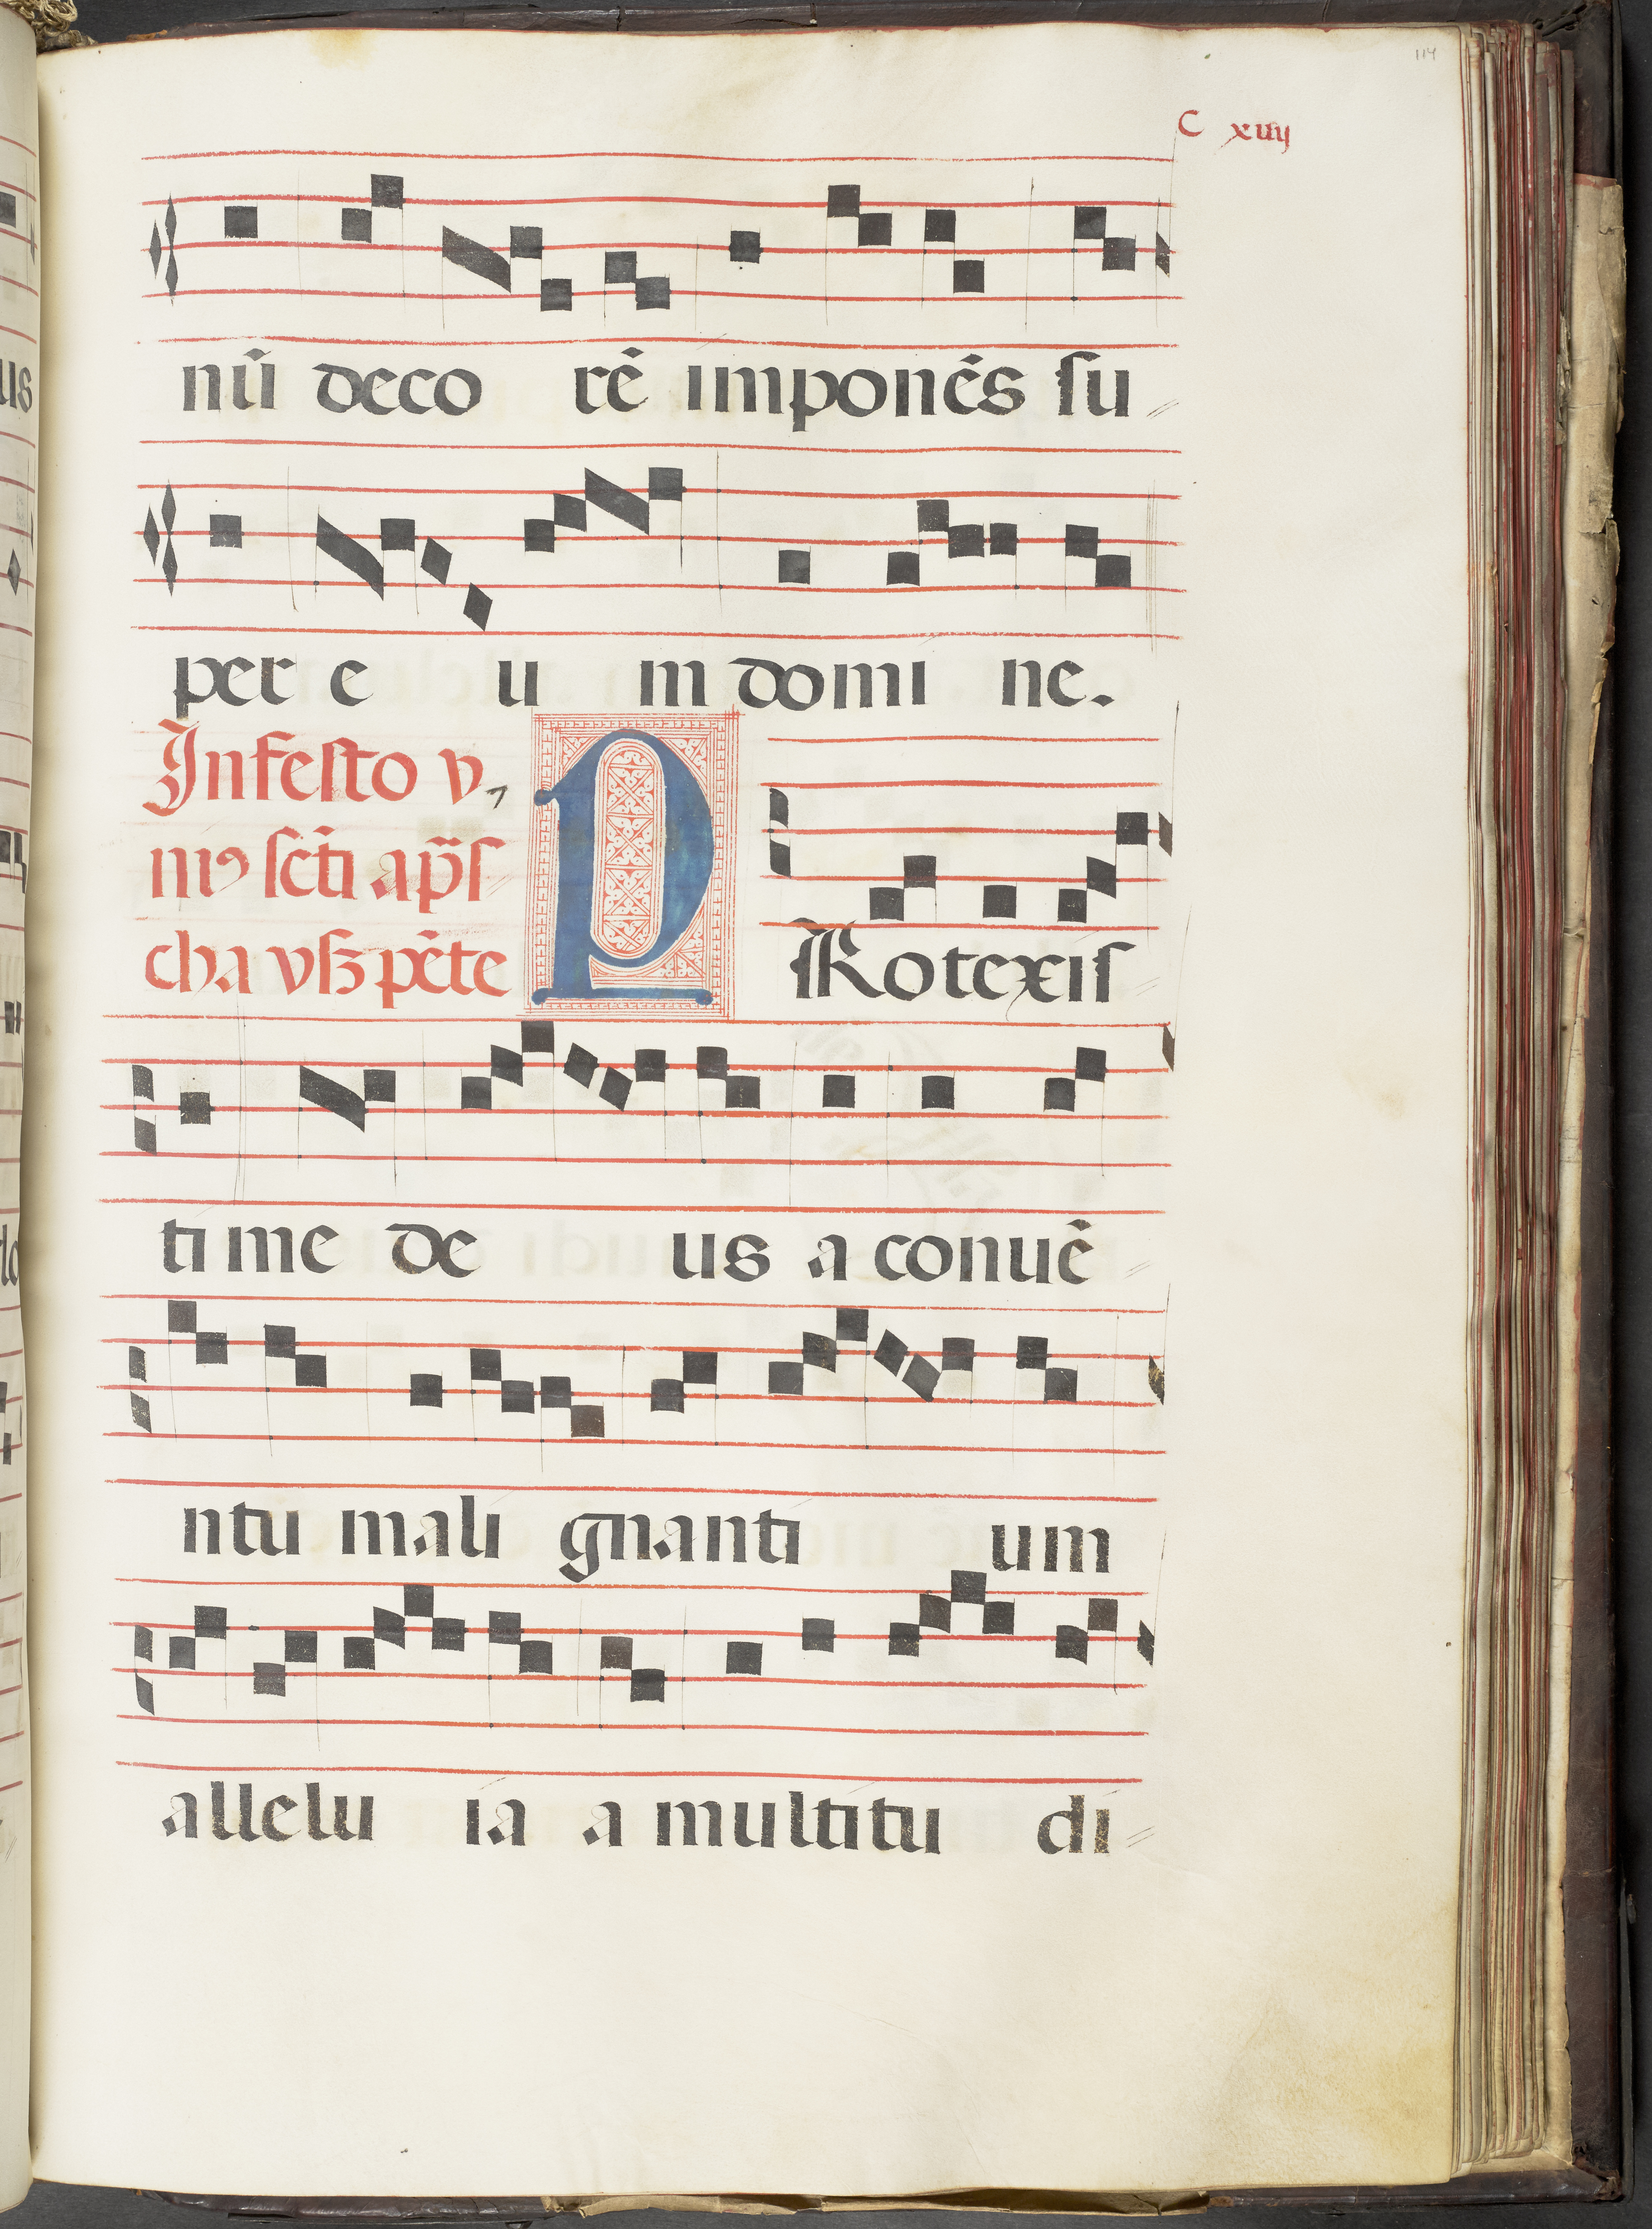 114
C xiiij
nū deco rē imponēs ſu
per e u m domi ne.
In feſto v,
niꝰ ſcti ap̄ſ
cha vſꝫ pēte
PRotexiſ
ti me de us a conuē
ntu mali gnanti um
allelu ia a multitu di